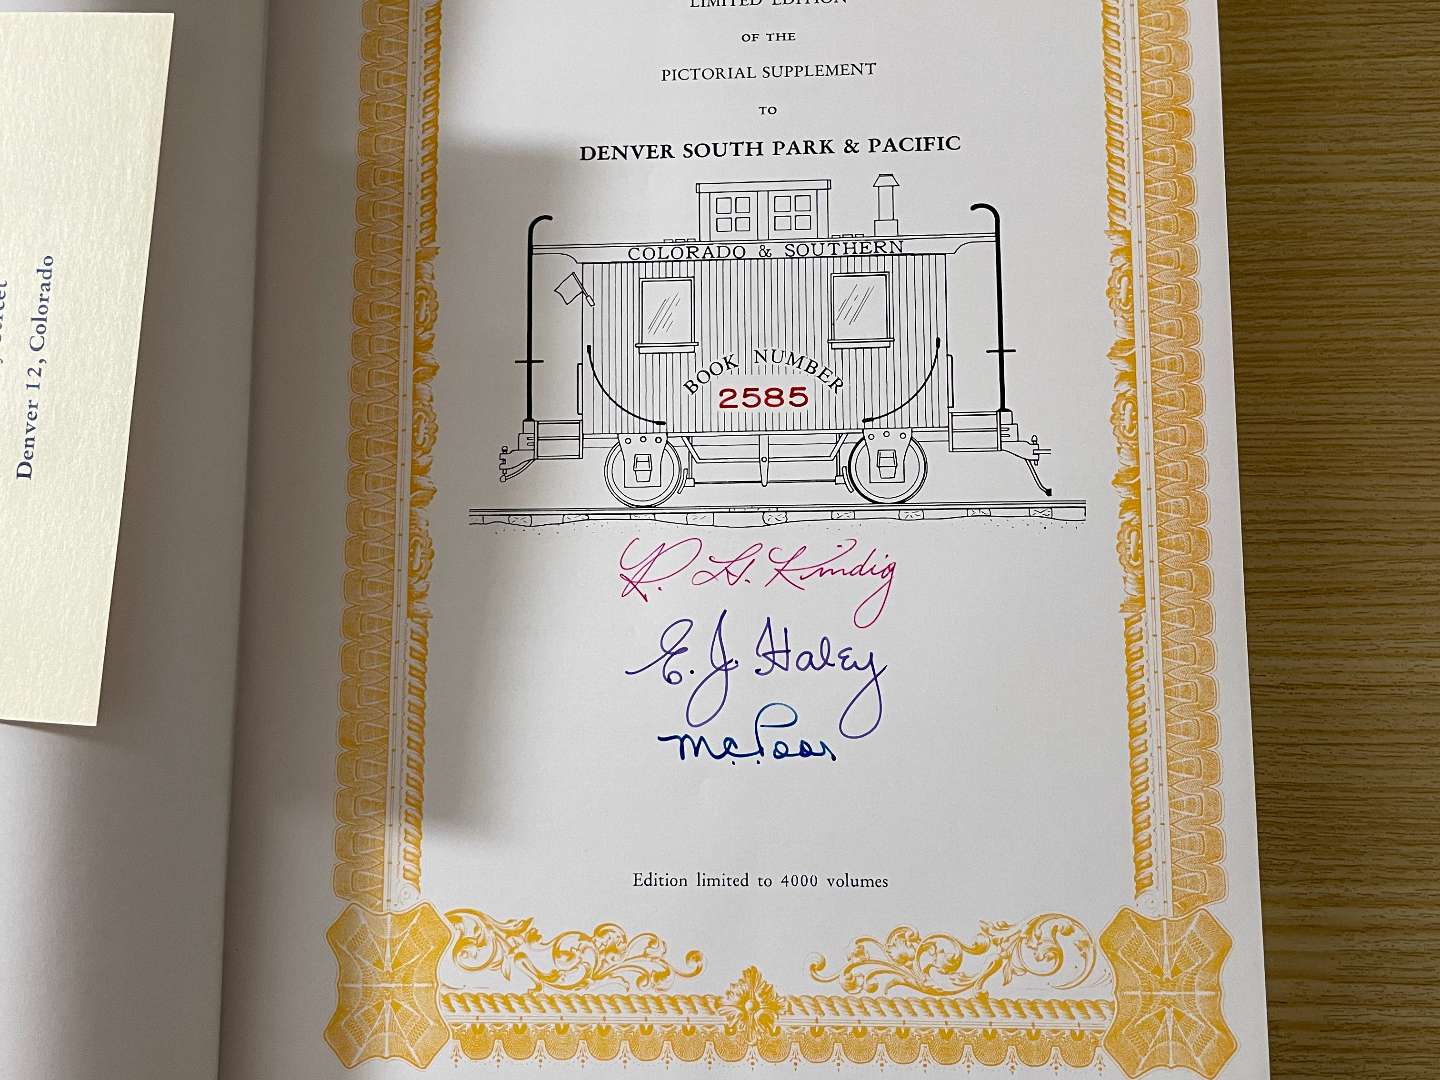 Denver 12, Colorado
LIMITED EDITION
OF THE
PICTORIAL SUPPLEMENT
TO
DENVER SOUTH PARK & PACIFIC
COLORADO & SOUTHERN
BOOK NUMBER
2585
R. H. Kindig
E. J. Haley
M.C. Poor
Edition limited to 4000 volumes